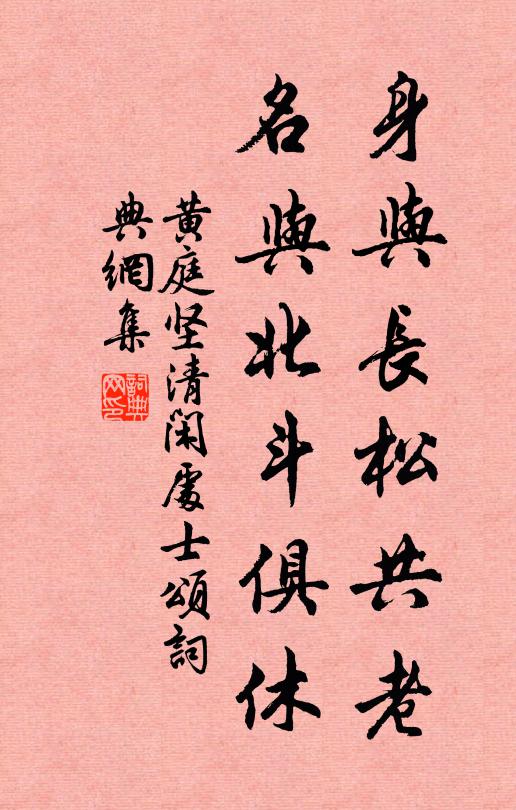 身與長松共老
名與北斗俱休
黄庭坚清閑處士頌詞
典網集
詞典網印